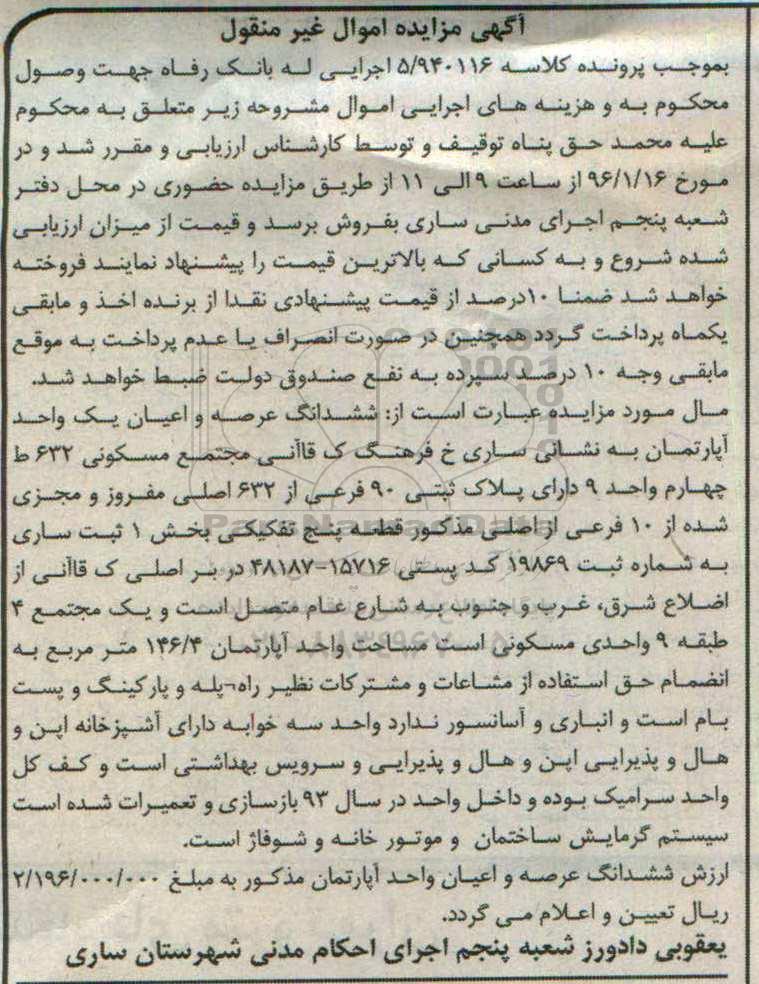 آگهی مزایده اموال غیر منقول
بموجب پرونده کلاسه ۵/۹۴۰۱۱۶ اجرایی له بانک رفاه جهت وصول
محکوم به و هزینه های اجرایی اموال مشروحه زیر متعلق به محکوم
علیه محمد حق پناه توقیف و توسط کارشناس ارزیابی و مقرر شد و در
مورخ ۹۶/۱/۱۶ از ساعت ۹ الی ۱۱ از طریق مزایده حضوری در محل دفتر
شعبه پنجم اجرای مدنی ساری بفروش برسد و قیمت از میزان ارزیابی
شده شروع و به کسانی که بالاترین قیمت را پیشنهاد نمایند فروخته
خواهد شد ضمنا ۱۰درصد از قیمت پیشنهادی نقدا از برنده اخذ و مابقی
یکماه پرداخت گردد همچنین در صورت انصراف یا عدم پرداخت به موقع
مابقی وجه ۱۰ درصد سپرده به نفع صندوق دولت ضبط خواهد شد.
مال مورد مزایده عبارت است از: ششدانگ عرصه و اعیان یک واحد
آپارتمان به نشانی ساری خ فرهنگ ک قاآنی مجتمع مسکونی ۶۳۲ ط
چهارم واحد ۹ دارای پلاک ثبتی ۹۰ فرعی از ۶۳۲ اصلی مفروز و مجزی
شده از ۱۰ فرعی از اصلی مذکور قطعه پنج تفکیکی بخش ۱ ثبت ساری
به شماره ثبت ۱۹۸۶۹ کد پستی ۱۵۷۱۶-۴۸۱۸۷ در بر اصلی ک قاآنی از
اضلاع شرق، غرب و جنوب به شارع عام متصل است و یک مجتمع ۴
طبقه ۹ واحدی مسکونی است مساحت واحد آپارتمان ۱۴۶/۴ متر مربع به
انضمام حق استفاده از مشاعات و مشترکات نظیر راه¬پله و پارکینگ و پست
بام است و انباری و آسانسور ندارد واحد سه خوابه دارای آشپزخانه اپن و
هال و پذیرایی اپن و هال و پذیرایی و سرویس بهداشتی است و کف کل
واحد سرامیک بوده و داخل واحد در سال ۹۳ بازسازی و تعمیرات شده است
سیستم گرمایش ساختمان و موتور خانه و شوفاژ است.
ارزش ششدانگ عرصه و اعیان واحد آپارتمان مذکور به مبلغ ۲/۱۹۶/۰۰۰/۰۰۰
ریال تعیین و اعلام می گردد.
یعقوبی دادورز شعبه پنجم اجرای احکام مدنی شهرستان ساری